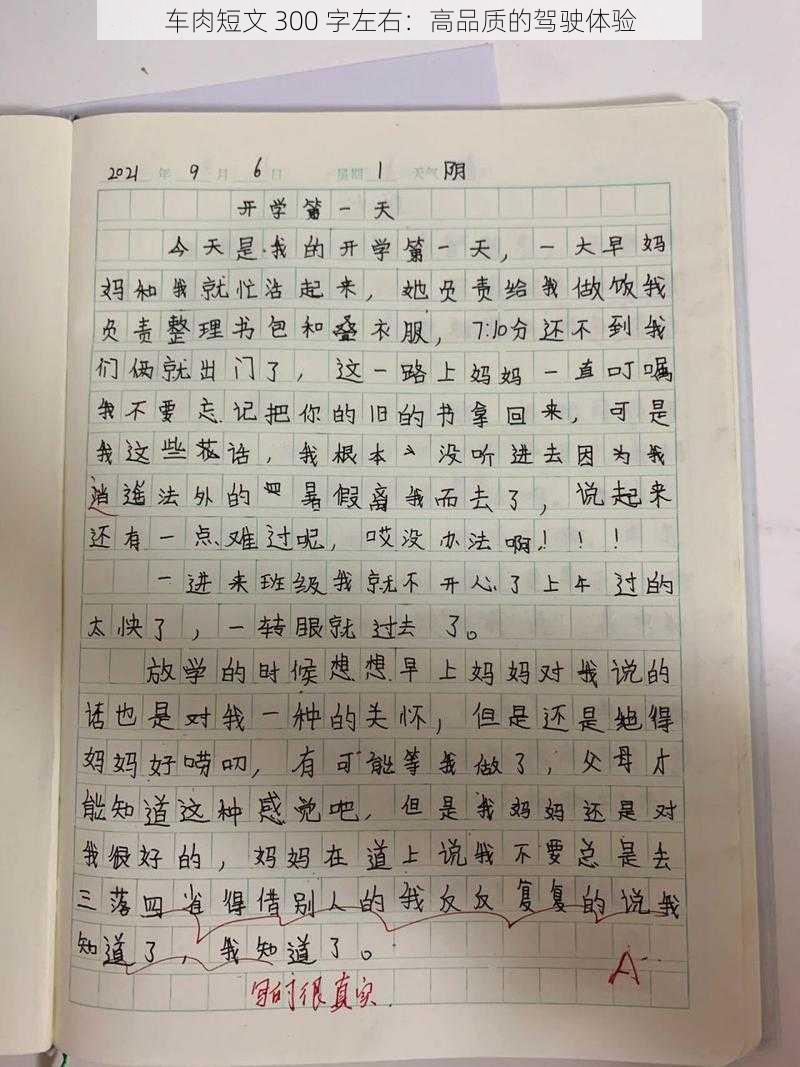 车肉短文 300 字左右：高品质的驾驶体验
2021 年 9 月 6 日 星期 1 天气 阴
开学第一天
今天是我的开学第一天，一大早妈
妈和我就忙活起来，她负责给我做饭我
负责整理书包和叠衣服，7:10分还不到我
们俩就出门了，这一路上妈妈一直叮嘱
我不要忘记把你的旧的书拿回来，可是
我这些花话，我根本没听进去因为我
逍遥法外的暑假离我而去了，说起来
还有一点难过呢，哎没办法啊！！！
一进来班级我就不开心了上午过的
太快了，一转眼就过去了。
放学的时候想想早上妈妈对我说的
话也是对我一种的关怀，但是还是她得
妈妈好唠叨，有可能等我做了，父母才
能知道这种感觉吧，但是我妈妈还是对
我很好的，妈妈在道上说我不要总是去
三落四省得借别人的我反反复复的说我
知道了，我知道了。
A
写的很真实.